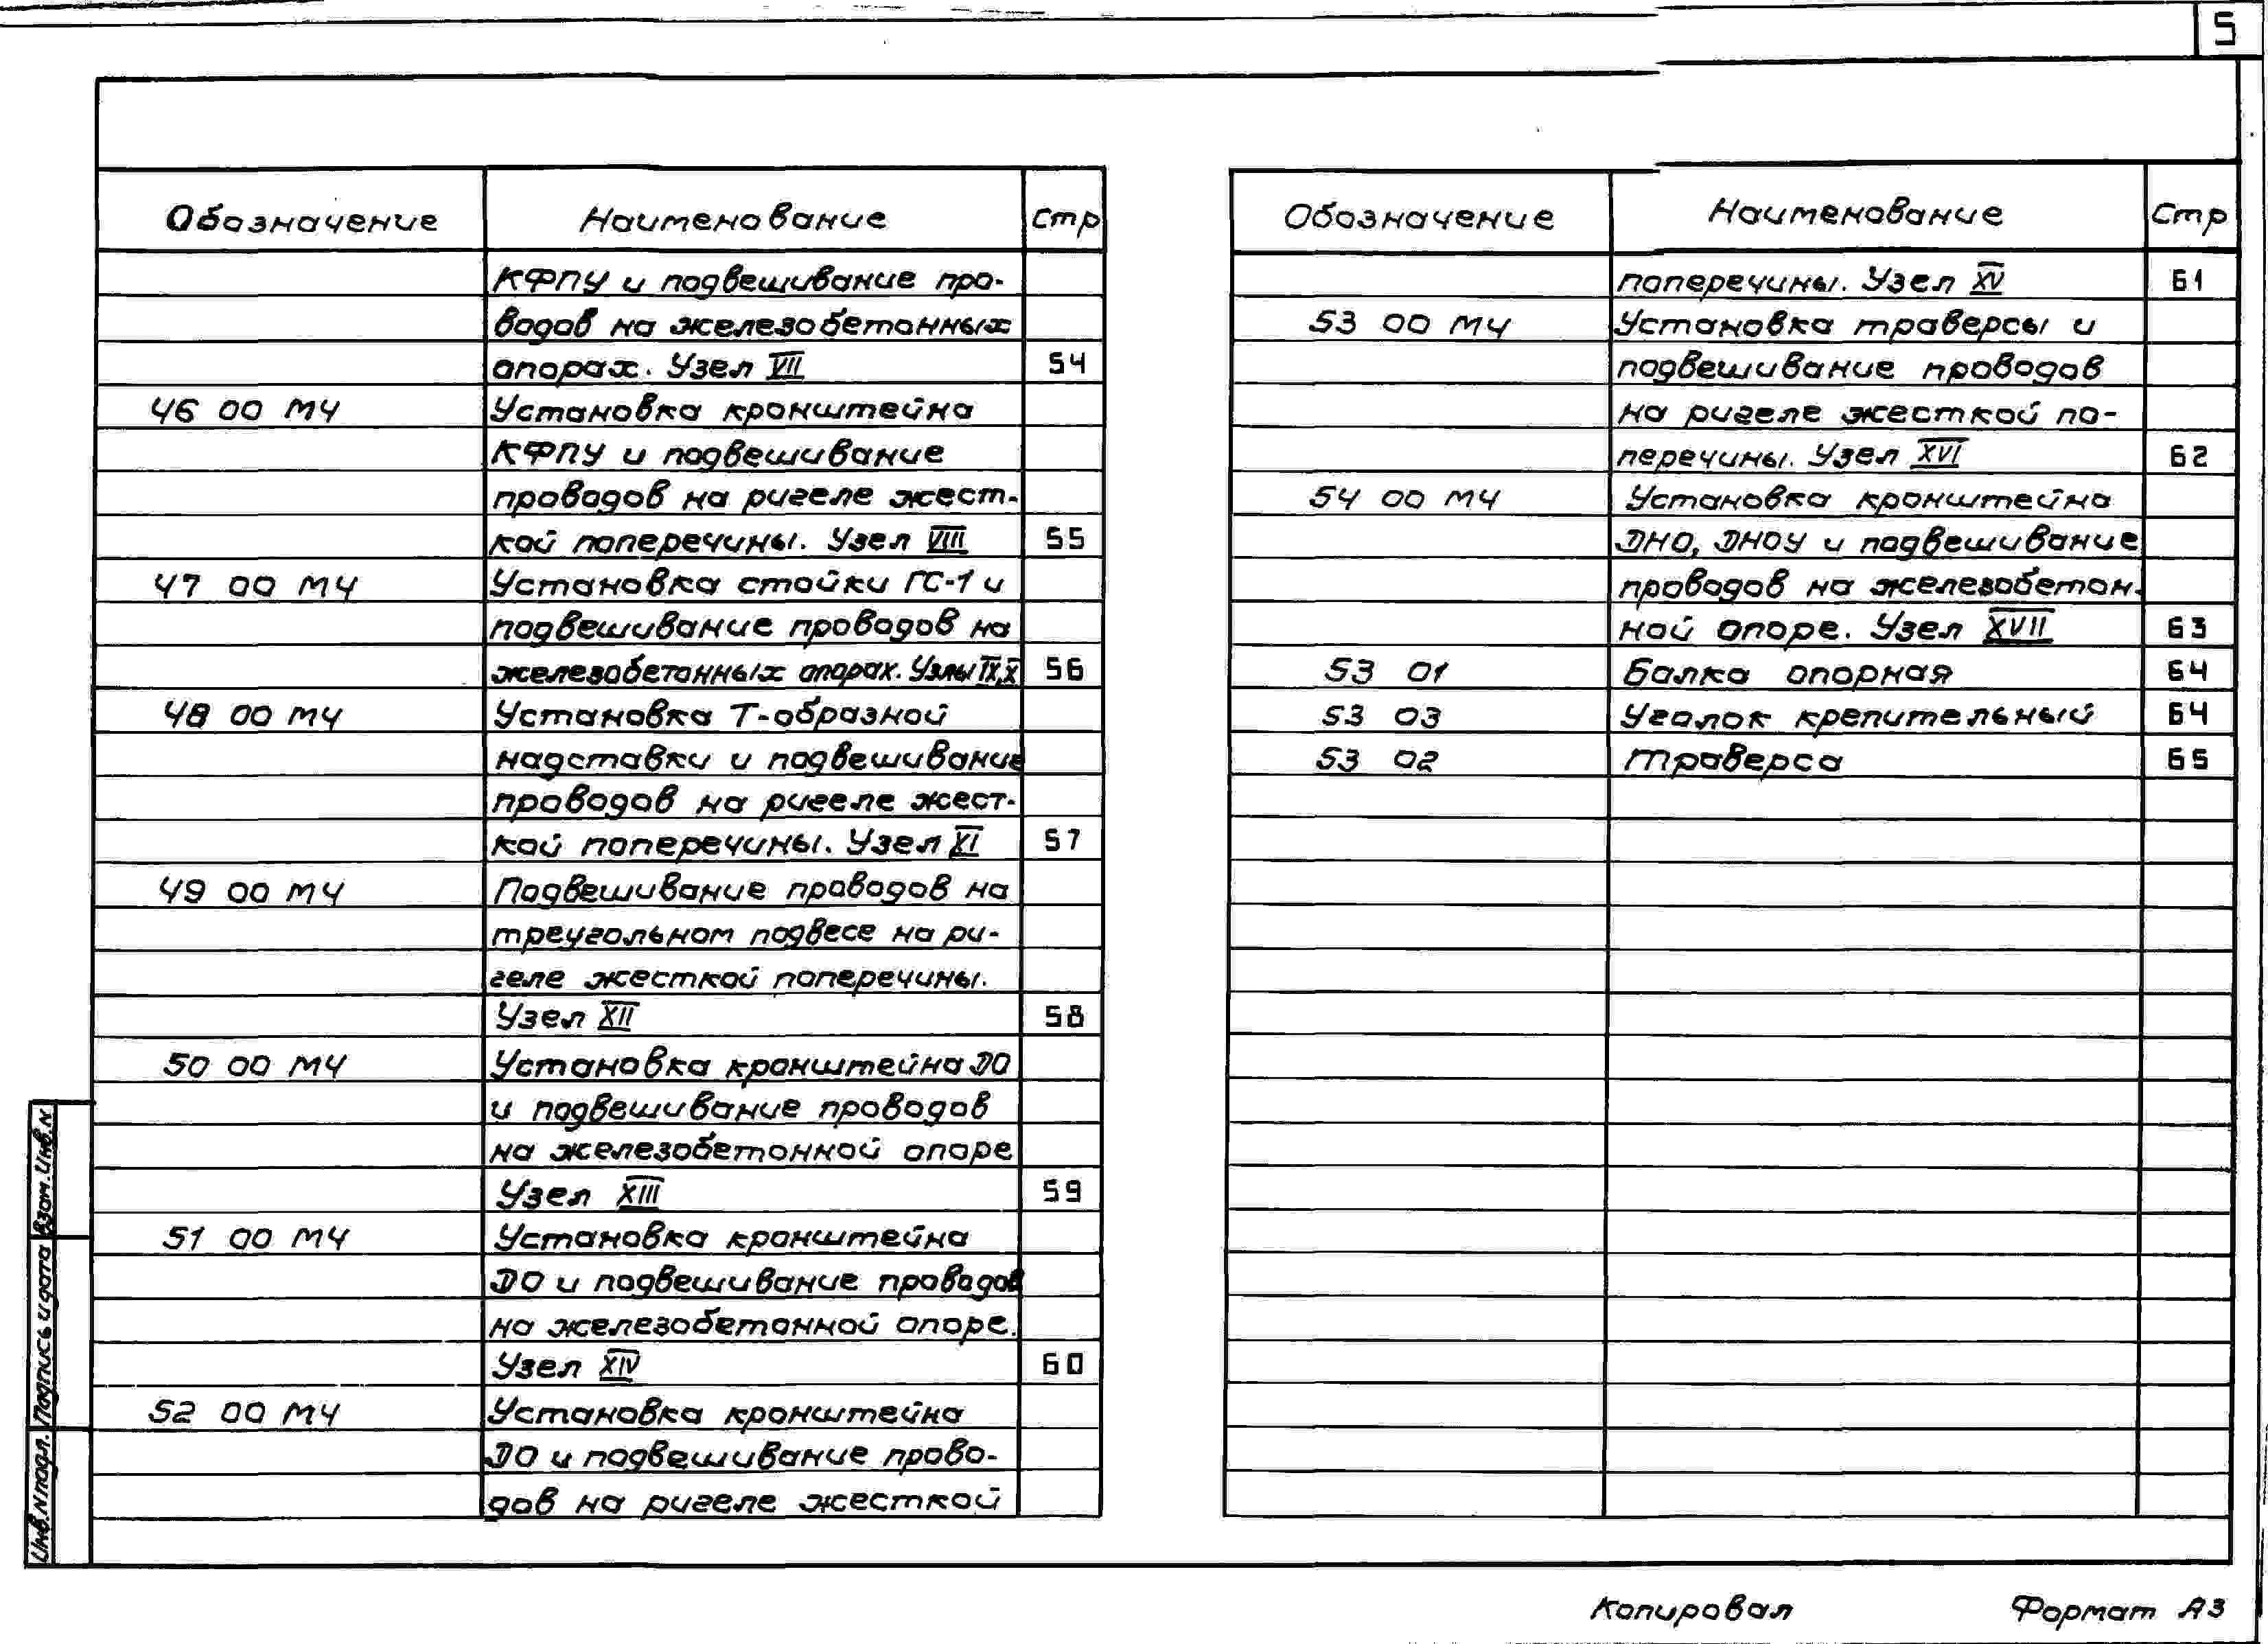 5
Обозначение Наименование Стр
КФПУ и подвешивание про-
водов на железобетонных
опорах. Узел VII 54
46 00 МЧ Установка кронштейна
КФПУ и подвешивание
проводов на ригеле жест-
кой поперечины. Узел VIII 55
47 00 МЧ Установка стойки ГС-1 и
подвешивание проводов на
железобетонных опорах. Узлы IX, X 56
48 00 МЧ Установка Т-образной
надставки и подвешивание
проводов на ригеле жест-
кой поперечины. Узел XI 57
49 00 МЧ Подвешивание проводов на
треугольном подвесе на ри-
геле жесткой поперечины.
Узел XII 58
50 00 МЧ Установка кронштейна ДО
и подвешивание проводов
на железобетонной опоре
Узел XIII 59
51 00 МЧ Установка кронштейна
ДО и подвешивание проводов
на железобетонной опоре.
Узел XIV 60
52 00 МЧ Установка кронштейна
ДО и подвешивание прово-
дов на ригеле жесткой
Обозначение Наименование Стр
поперечины. Узел XV 61
53 00 МЧ Установка траверсы и
подвешивание проводов
на ригеле жесткой по-
перечины. Узел XVI 62
54 00 МЧ Установка кронштейна
ДНО, ДНОУ и подвешивание
проводов на железобетон-
ной опоре. Узел XVII 63
53 01 Балка опорная 64
53 03 Уголок крепительный 64
53 02 Траверса 65
Взам. Инв. N
Подпись и дата
Инв. N подл.
Копировал Формат А3